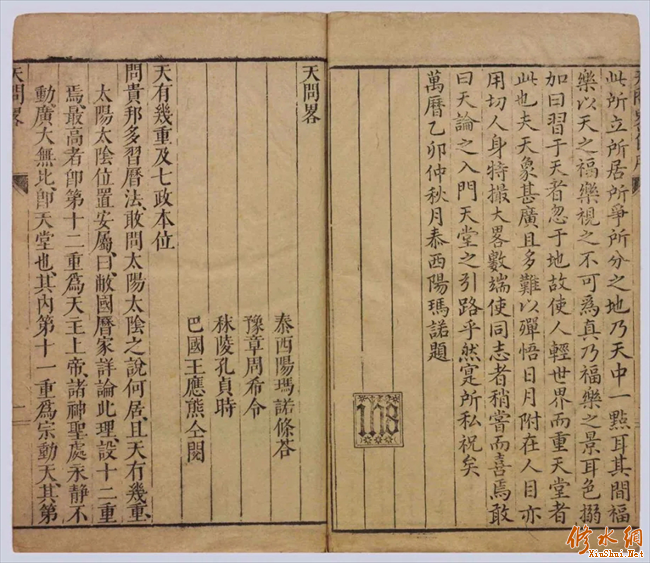 此所立所居所爭所分之地乃天中一點耳其間福
樂以天之福樂視之不可為真乃福樂之景耳色搦
加曰習于天者忽于地故使人輕世界而重天堂者
此也夫天象甚廣且多難以殫悟日月附在人目亦
用切人身特撮大畧數端使同志者稍嘗而喜焉敢
曰天論之入門天堂之引路乎然寔所私祝矣
萬曆乙卯仲秋月泰西陽瑪諾題
ihs
天問畧
泰西陽瑪諾條答
豫章周希令
秣陵孔貞時
巴國王應熊仝閱
天有幾重及七政本位
問貴邦多習曆法、敢問太陽太陰之說何居、且天有幾重、
太陽太陰位置安屬、曰、敝國曆家詳論此理、設十二重
焉、最高者卽第十二重爲天王上帝、諸神聖處、永靜不
動、廣大無比、卽天堂也、其內第十一重爲宗動天、其第
天問畧
一
修水網
XiuShui.Net